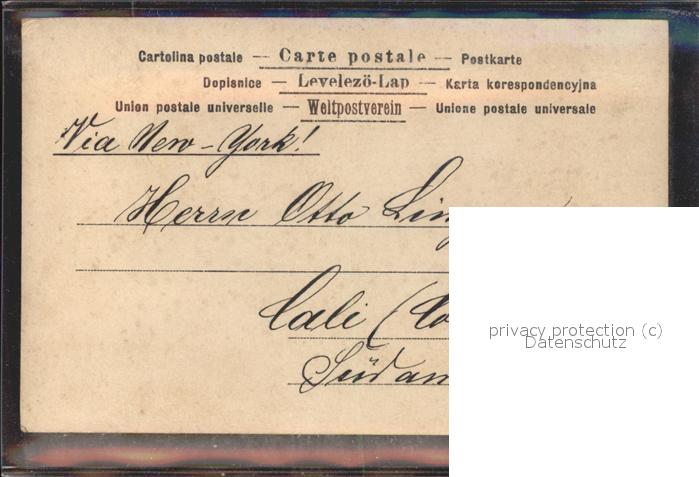 Cartolina postale — Carte postale — Postkarte
Dopisnice — Levelező-Lap — Karta korespondencyjna
Union postale universelle — Weltpostverein — Unione postale universale
Via New-York!
Herrn Otto
Cali (
privacy protection (c)
Datenschutz